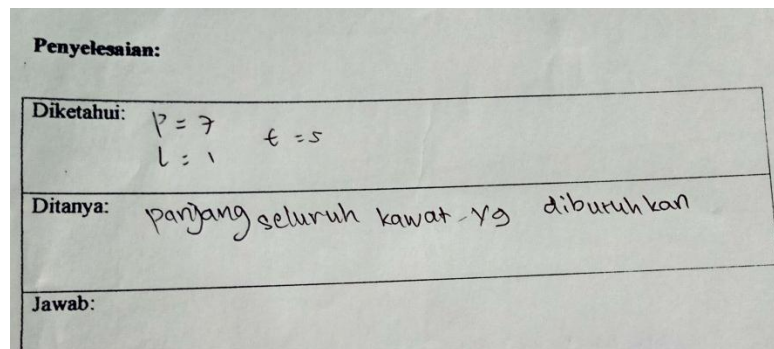 Penyelesaian:
Diketahui: p = 7 t = 5
l = 1
Ditanya: panjang seluruh kawat yg dibutuhkan
Jawab: